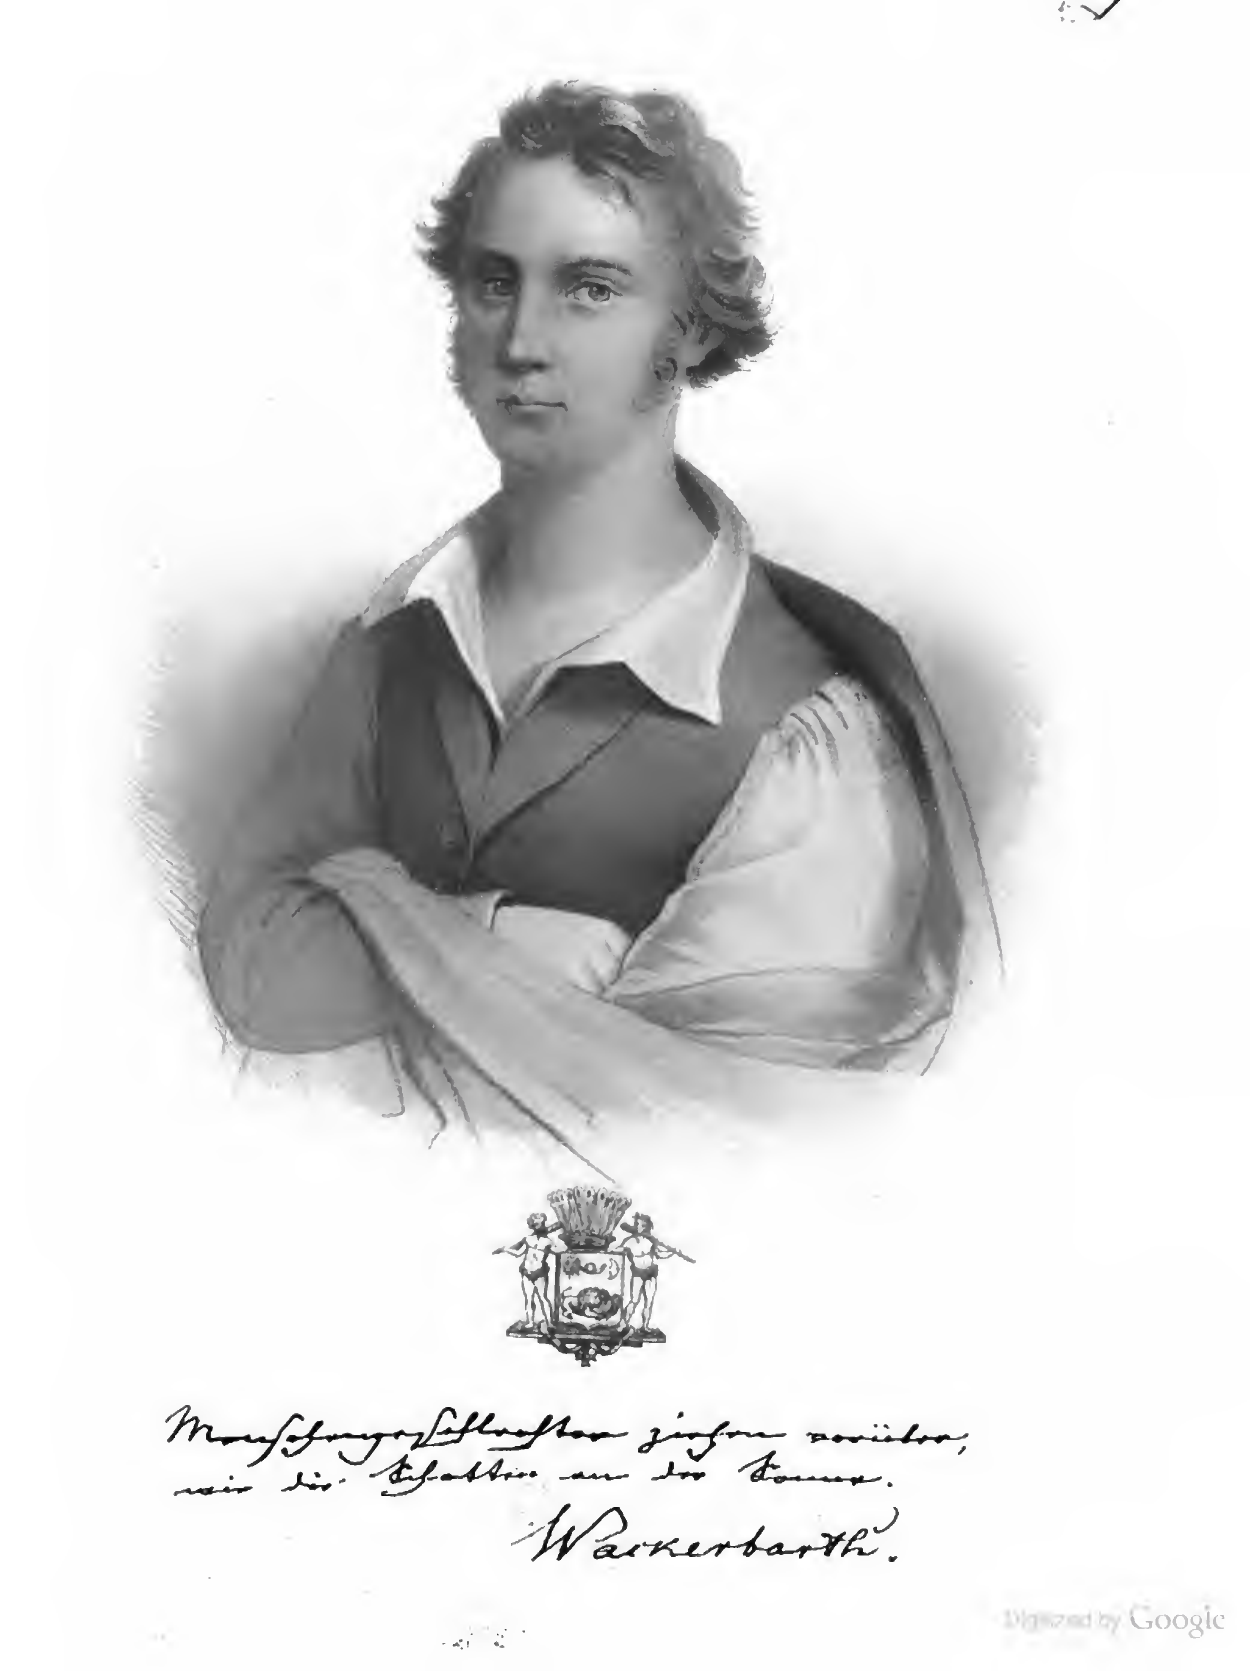 Menschengeschlechter ziehen vorüber,
wie die Schatten an der Sonne.
Wackerbarth.
Digitized by Google